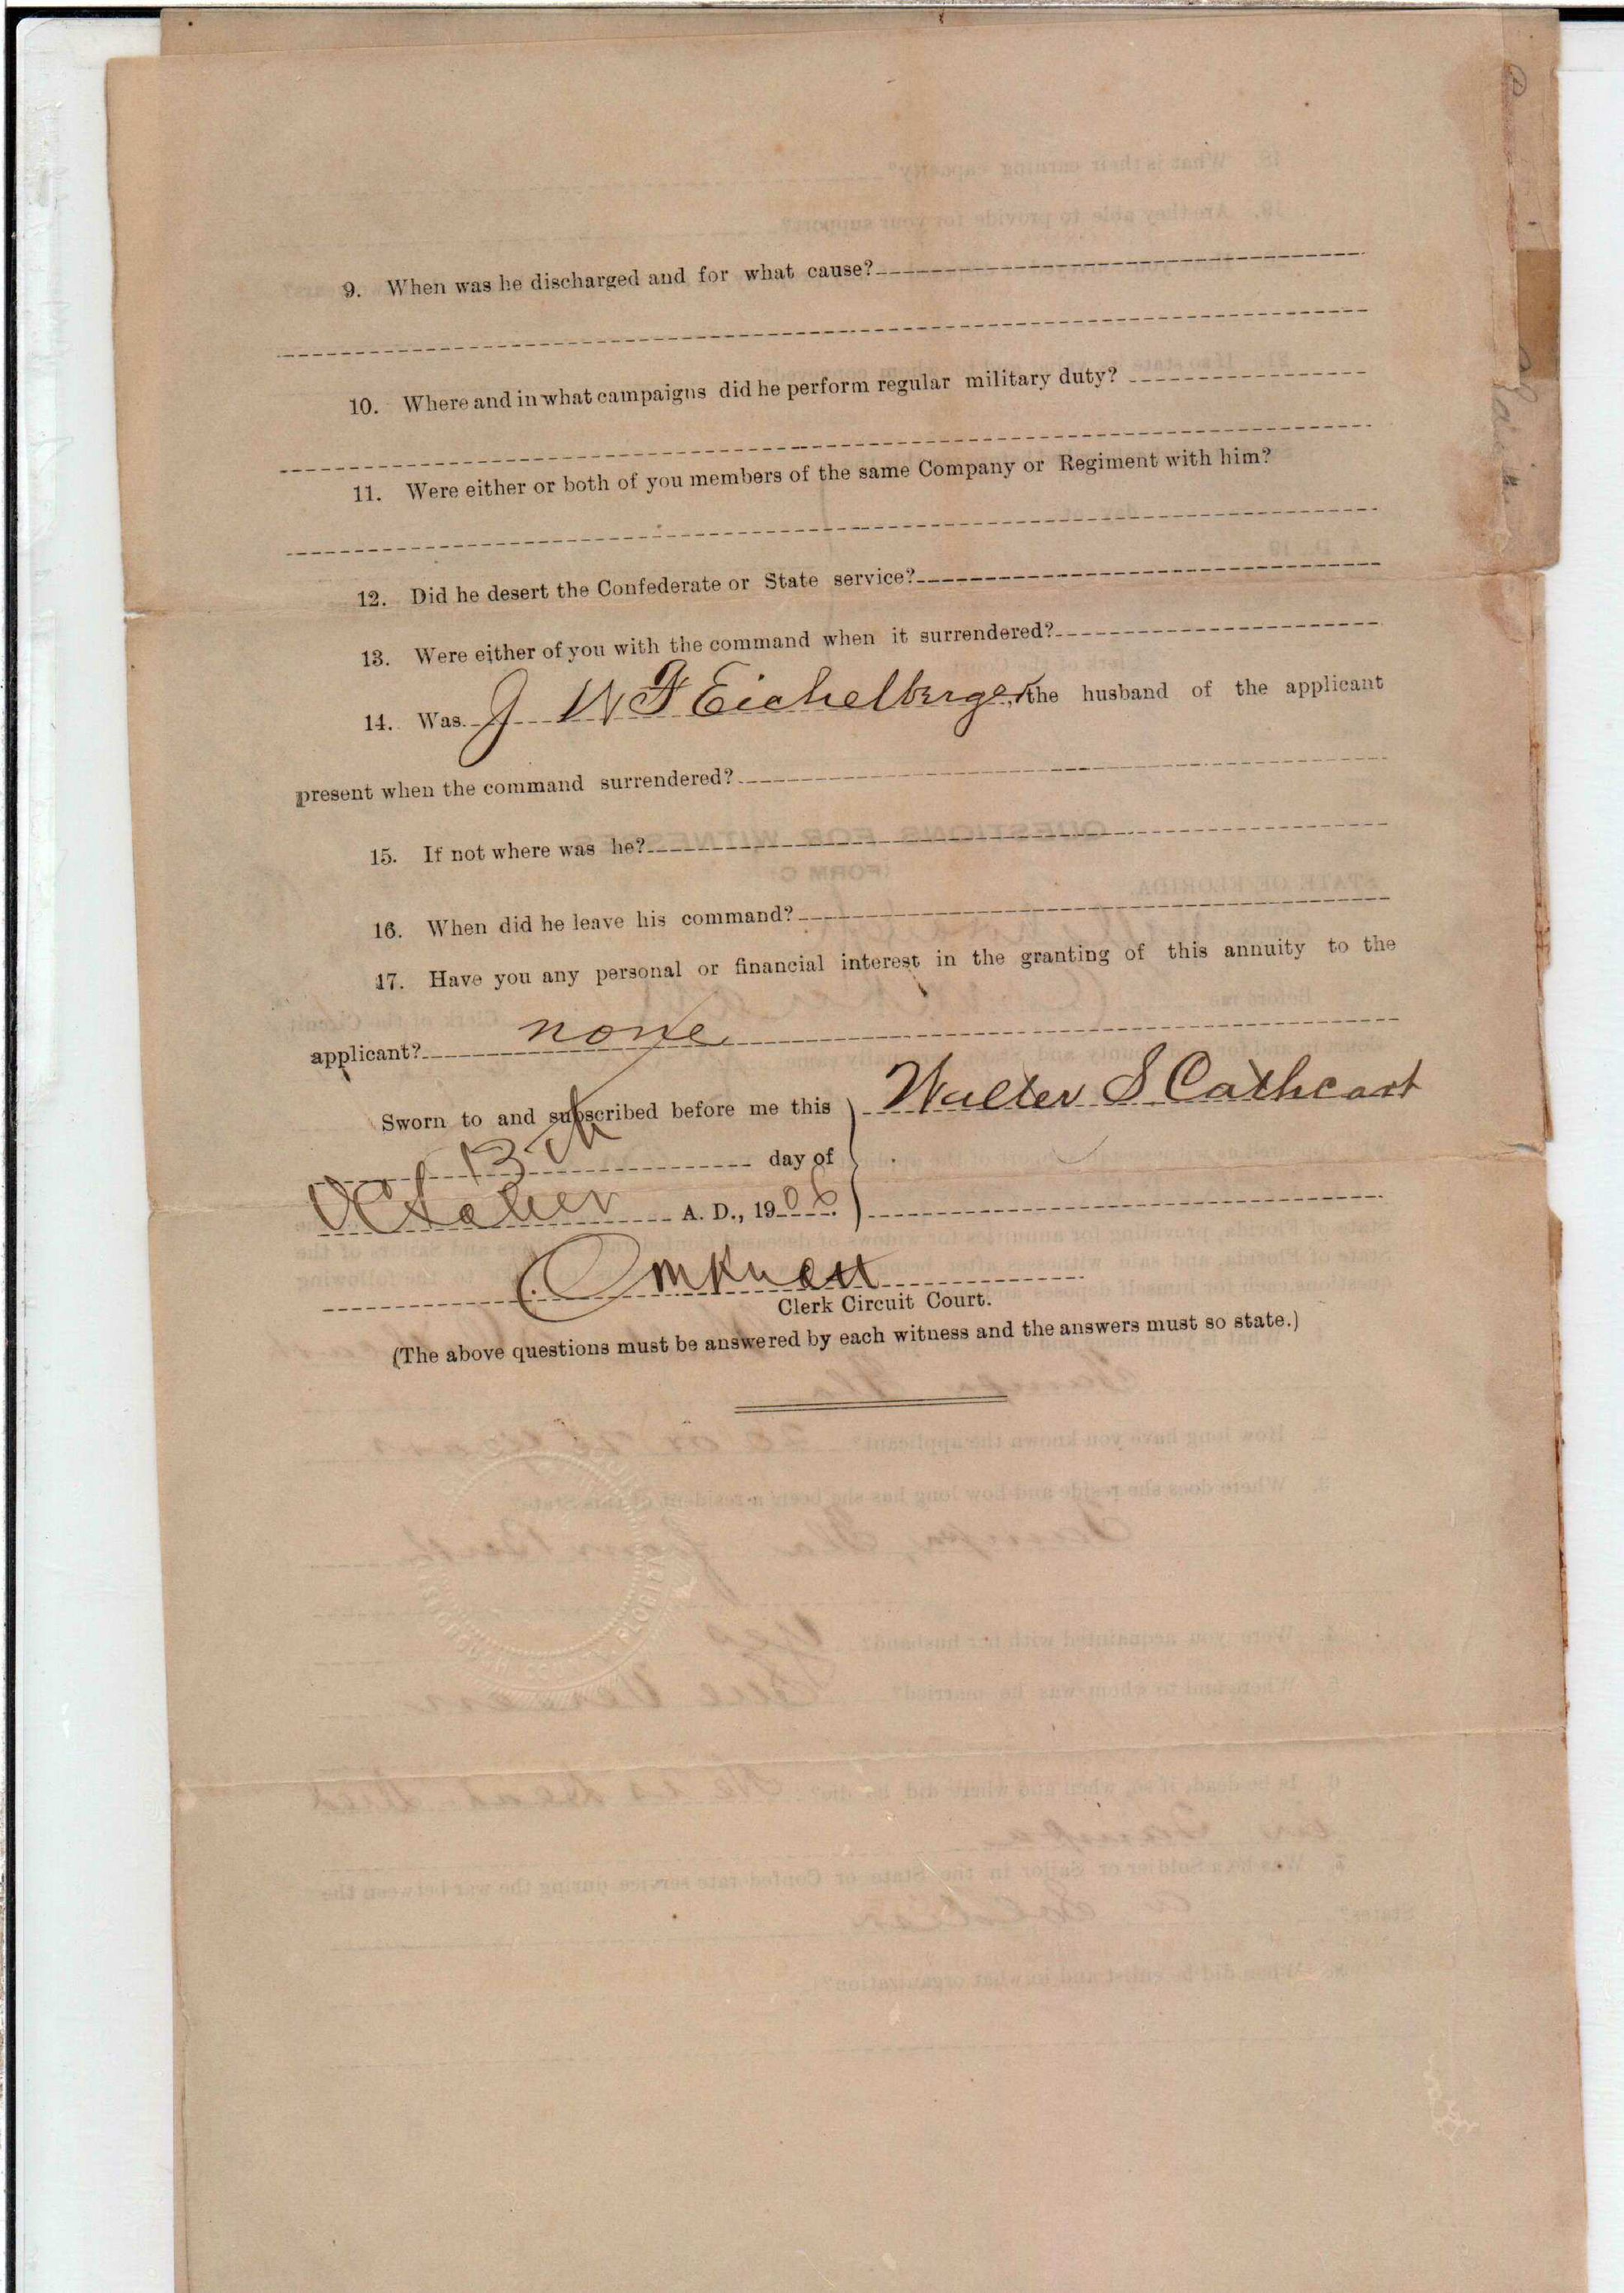 9. When was he discharged and for what cause?
10. Where and in what campaigns did he perform regular military duty?
11. Were either or both of you members of the same Company or Regiment with him?
12. Did he desert the Confederate or State service?
13. Were either of you with the command when it surrendered?
14. Was J W F Eichelberger, the husband of the applicant
present when the command surrendered?
15. If not where was he?
16. When did he leave his command?
17. Have you any personal or financial interest in the granting of this annuity to the
applicant? none
Sworn to and subscribed before me this } Walter S Cathcart
13th day of
October A. D., 1906.
Clerk Circuit Court.
(The above questions must be answered by each witness and the answers must so state.)